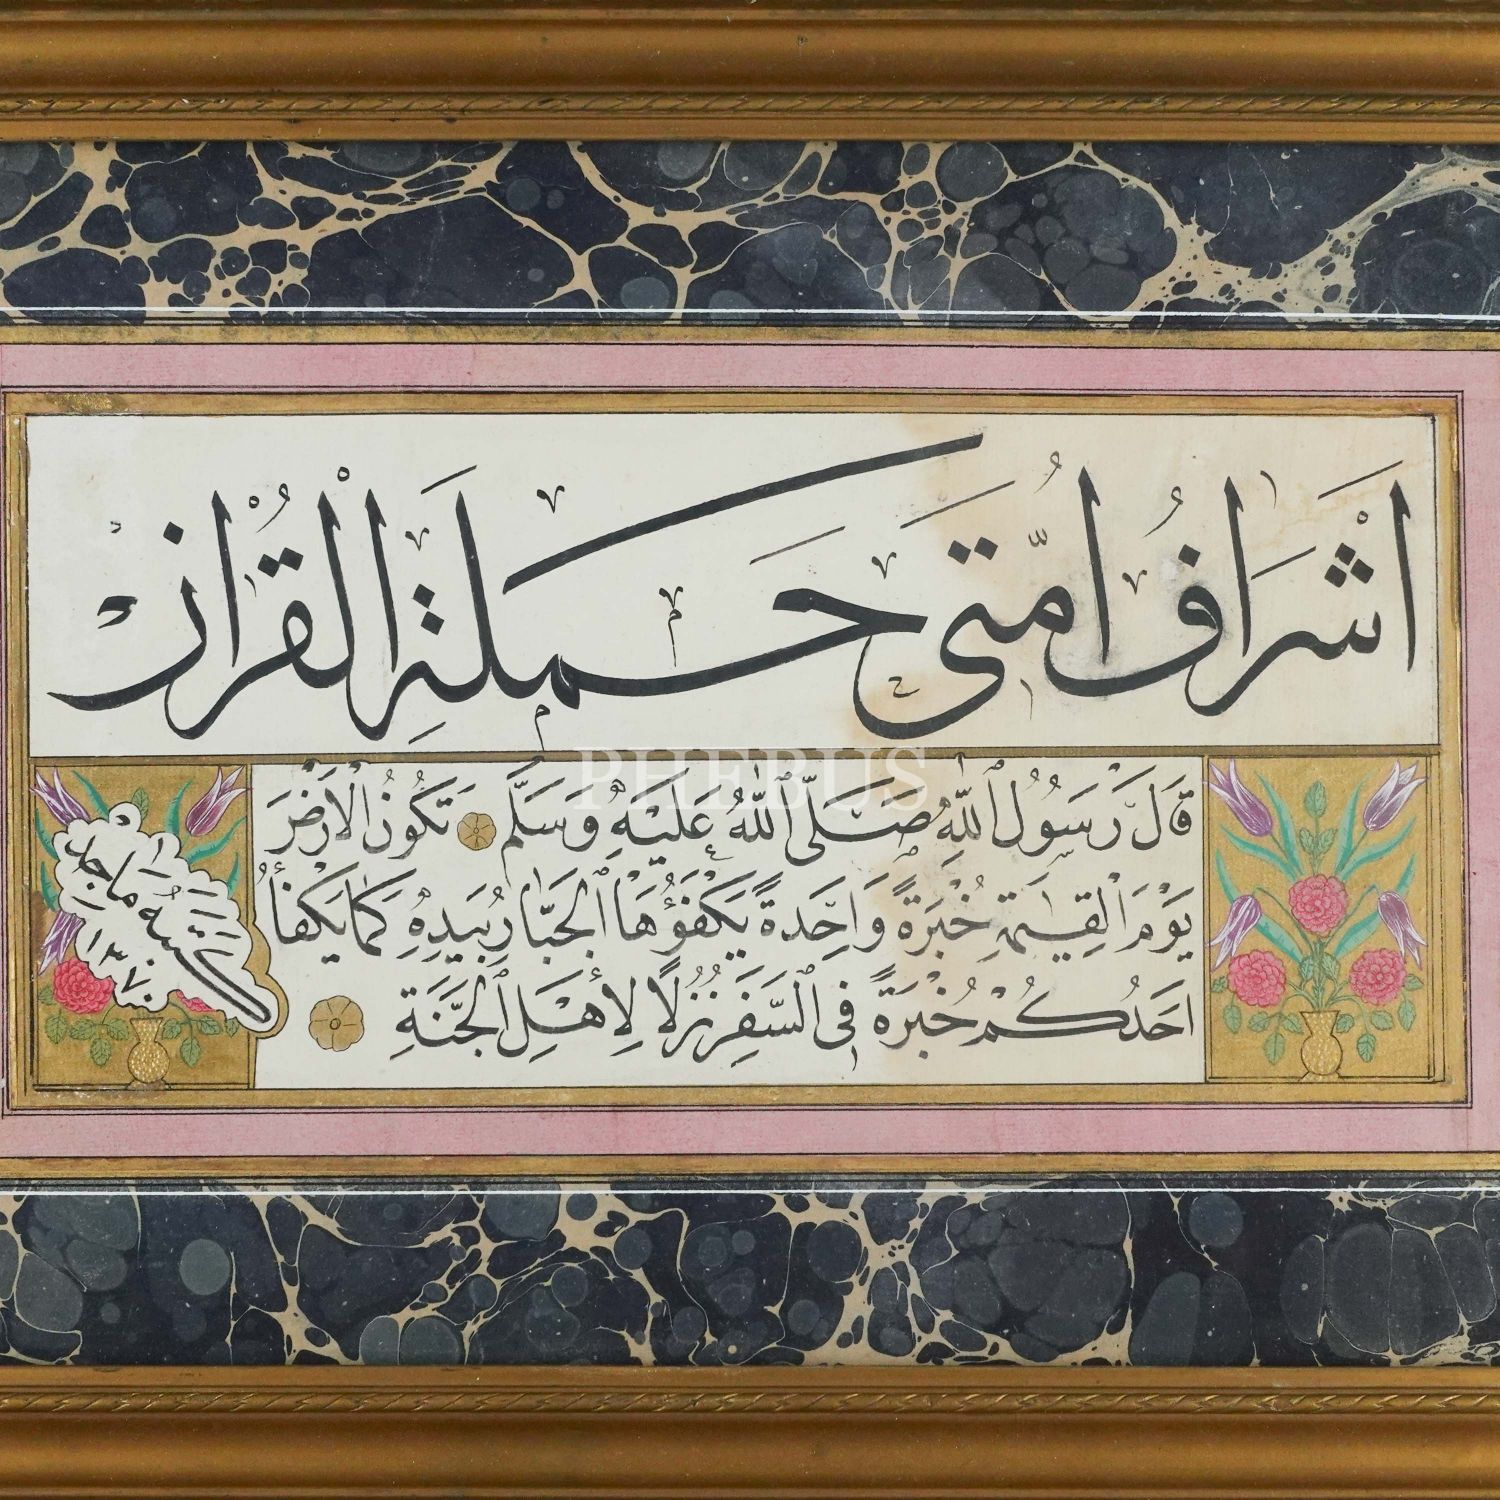 اَشْرَافُ اُمَّتَى حَمَلَةِ الْقُرْاٰنْ
PHEBUS
قَالَ رَسُولُ اللّٰهِ صَلَّى اللّٰهُ عَلَيْهِ وَسَلَّمَ تَكُونُ الْاَرْضُ
يَوْمَ الْقِيٰمَةِ خُبْزَةً وَاحِدَةً يَكْفَؤُهَا الْجَبَّارُ بِيَدِهِ كَمَا يَكْفَأُ
اَحَدُكُمْ خُبْزَةً فِى السَّفَرِ نُزُلًا لِأَهْلِ الْجَنَّةِ
كتبه ماجد
١٣٧٠